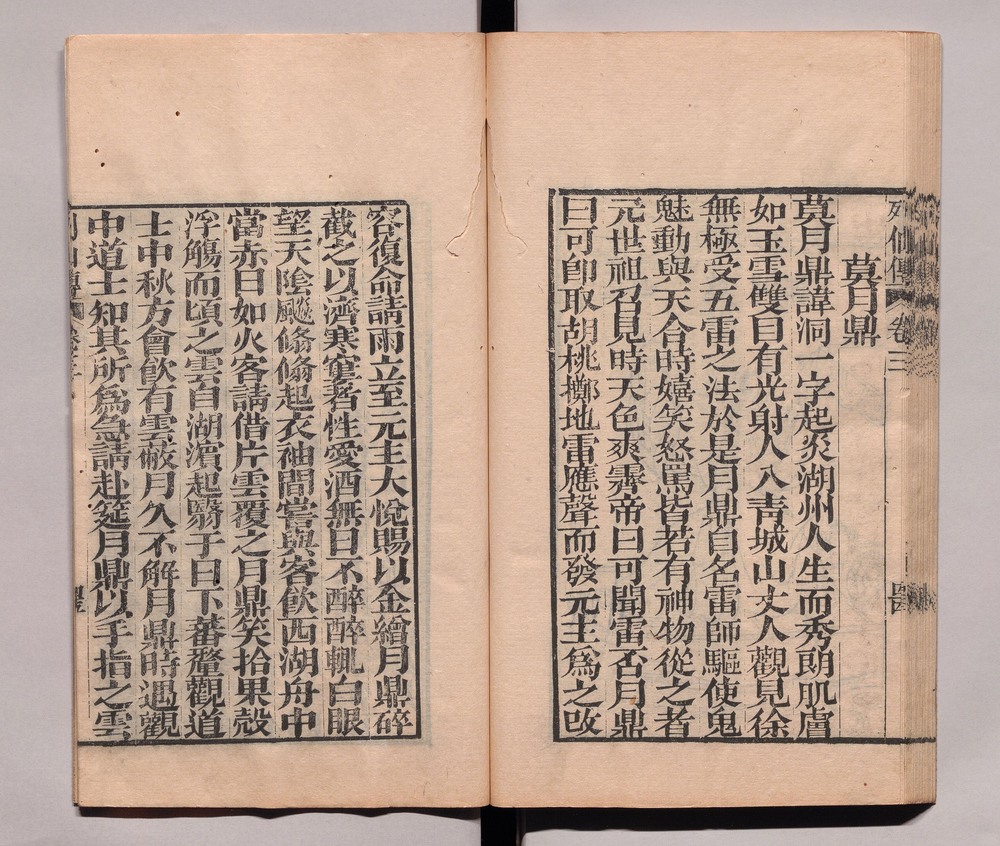 列仙傳 卷三
莫月鼎
莫月鼎諱洞一字起炎湖州人生而秀朗肌膚
如玉雪雙目有光射人入青城山丈人觀見徐
無極受五雷之法於是月鼎自名雷師驅使鬼
魅動與天合時嬉笑怒罵皆若有神物從之者
元世祖召見時天色爽霽帝曰可聞雷否月鼎
曰可卽取胡桃擲地雷應聲而發元主爲之改
容復命請雨立至元主大悅賜以金繒月鼎碎
截之以濟寒窶者性愛酒無日不醉醉輒白眼
望天陰飈翛翛起衣袖間嘗與客飲西湖舟中
當赤日如火客請借片雲覆之月鼎笑拾果殼
浮觴而頃之雲自湖濱起翳于日下蕃釐觀道
士中秋方會飲有雲蔽月久不解月鼎時遇觀
中道士知其所爲爲請赴筵月鼎以手指之雲